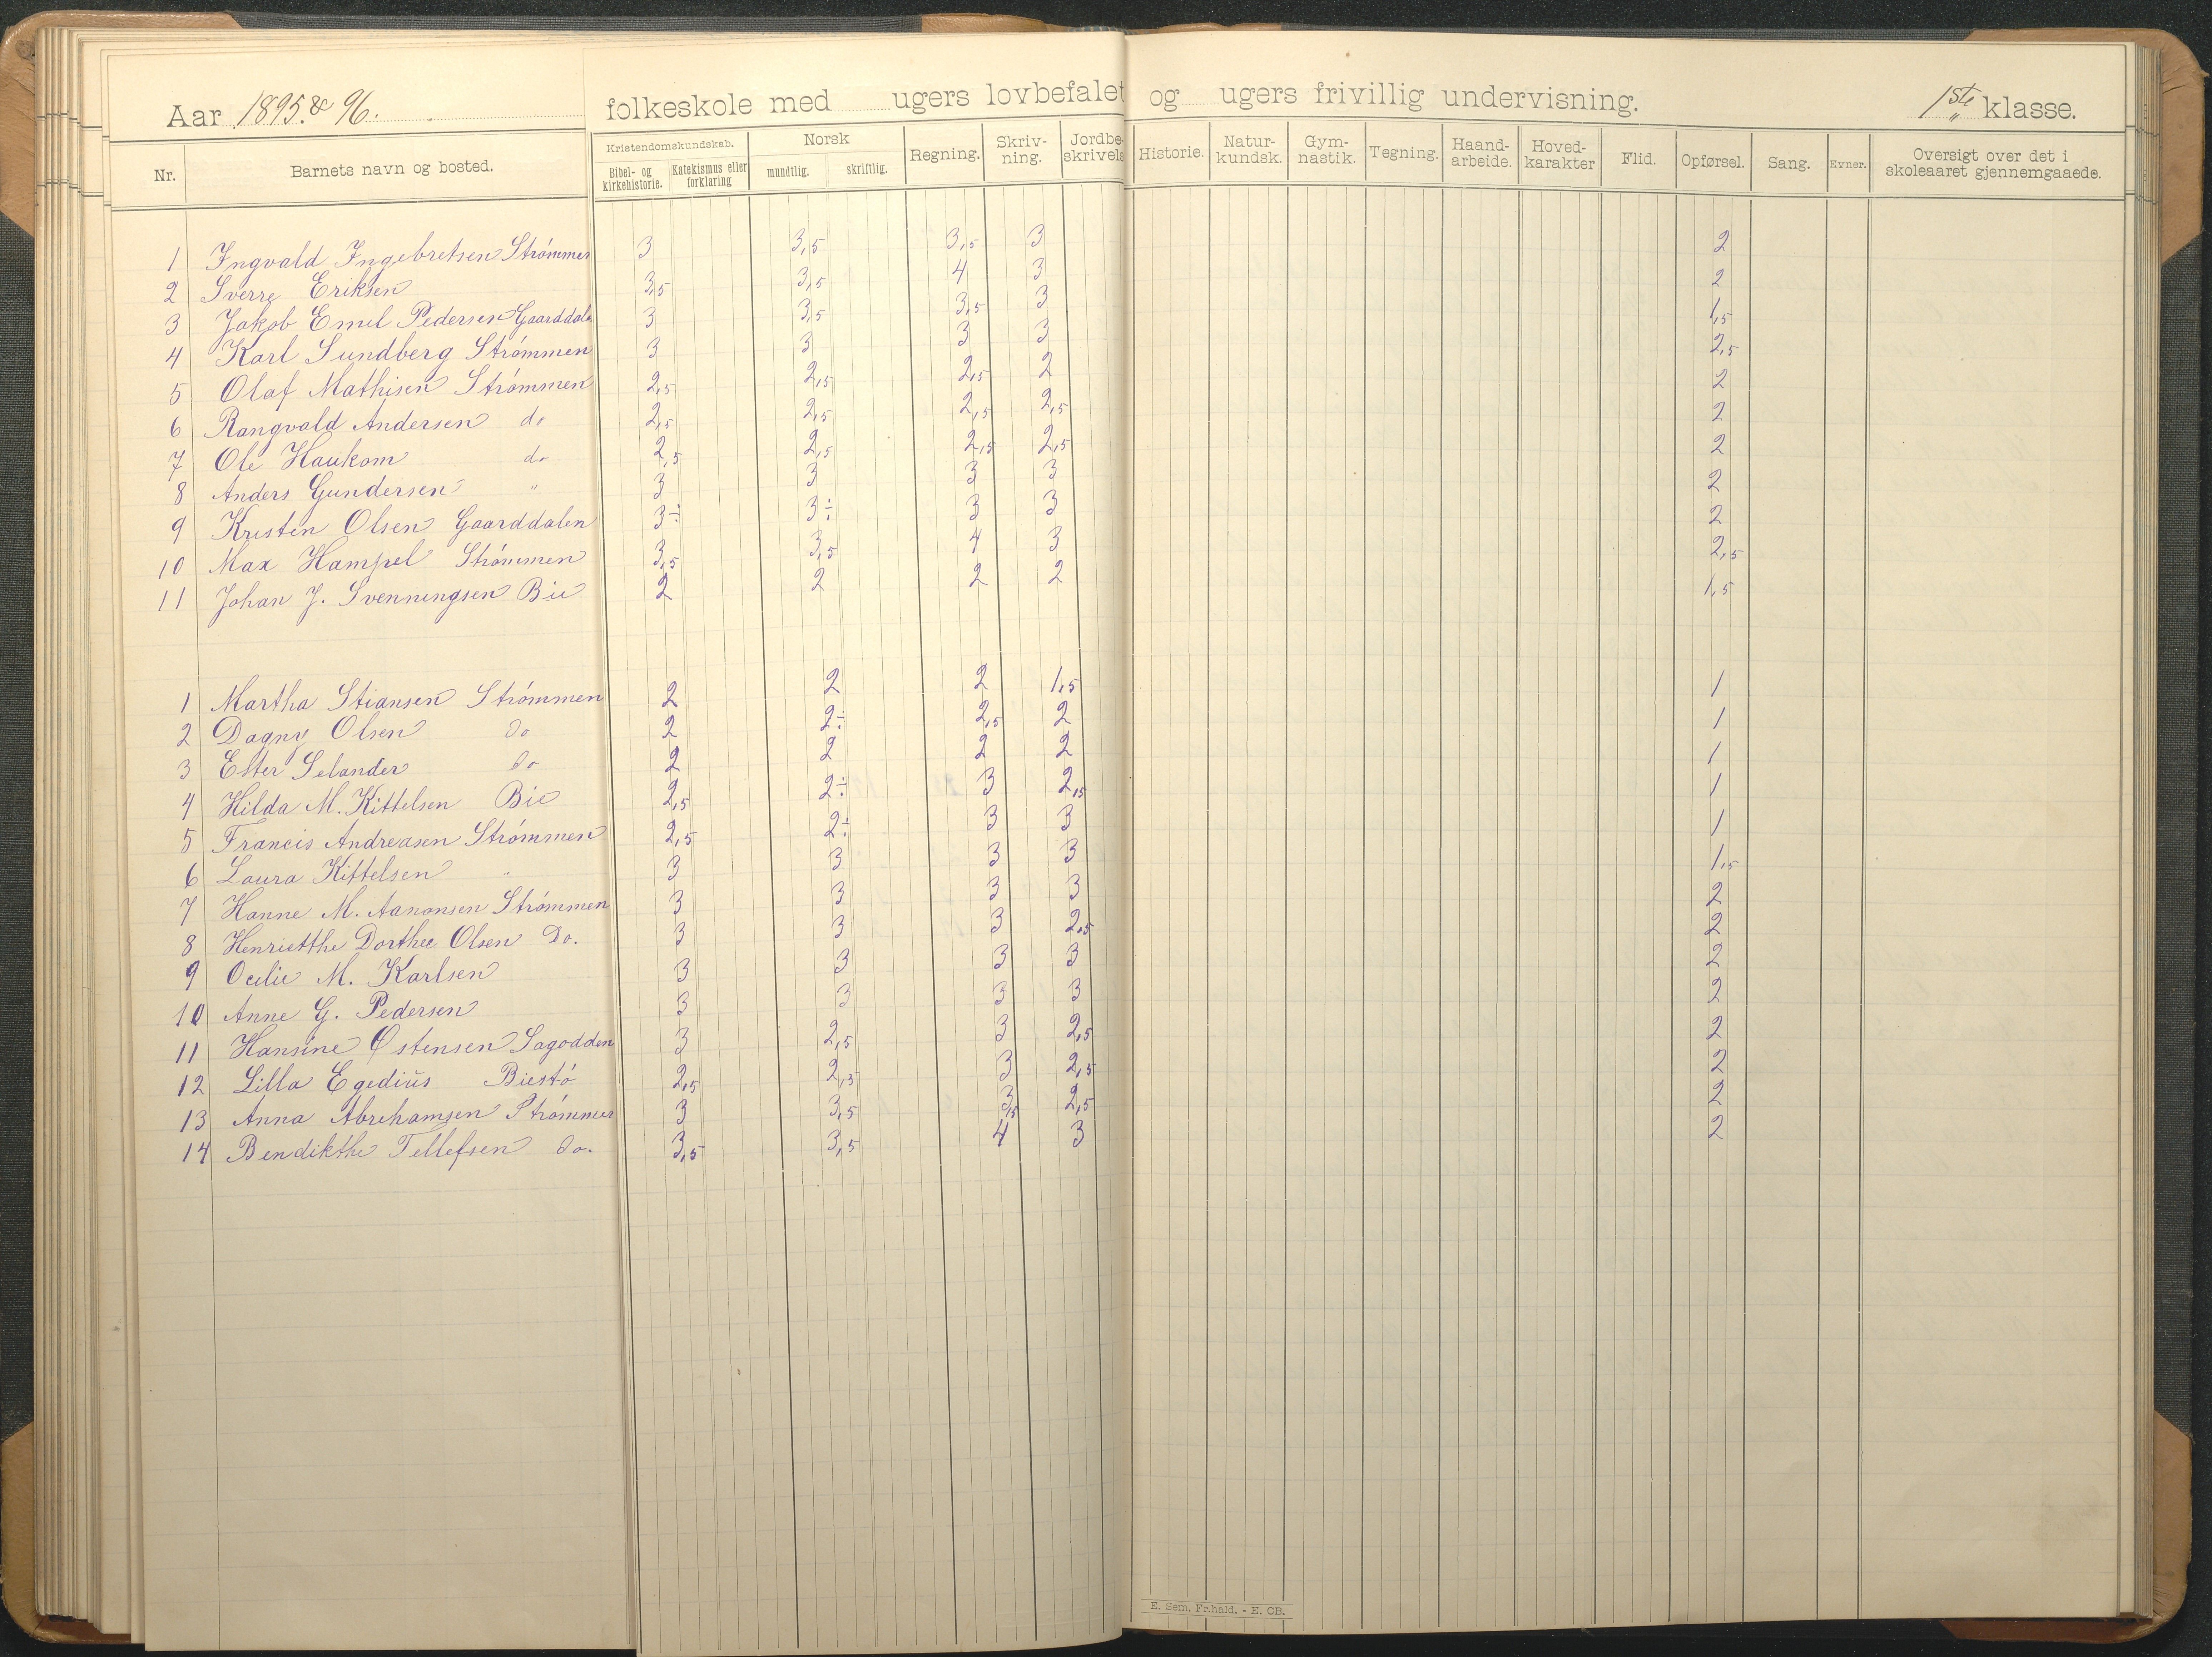 Aar 1895 & 96. folkeskole med ugers lovbefalet og ugers frivillig undervisning. 1ste klasse.
Nr. Barnets navn og bosted. Kristendomskundskab. Bibel- og kirkehistorie. Katekismus eller forklaring Norsk mundtlig. skriftlig. Regning. Skriv-ning. Jordbe-skrivels Historie. Natur-kundsk. Gym-nastik. Tegning. Haand-arbeide. Hoved-karakter Flid. Opførsel. Sang. Evner. Oversigt over det i skoleaaret gjennemgaaede.
1 Ingvald Ingebretsen Strømmen 3 3,5 3,5 3 2
2 Sverre Eriksen 3,5 3,5 4 3 2
3 Jakob Emil Pedersen Gaarddalen 3 3,5 3,5 3 1,5
4 Karl Sundberg Strømmen 3 3 3 3 2,5
5 Olaf Mathisen Strømmen 2,5 2,5 2,5 2 2
6 Rangvald Andersen do 2,5 2,5 2,5 2,5 2
7 Ole Haukom do 2,5 2,5 2,5 2,5 2
8 Anders Gundersen " 3 3 3 3 2
9 Kristen Olsen Gaarddalen 3÷ 3÷ 3 3 2
10 Max Hampel Strømmen 3,5 3,5 4 3 2,5
11 Johan J. Svenningsen Bie 2 2 2 2 1,5
1 Martha Stiansen Strømmen 2 2 2 1,5 1
2 Dagny Olsen do 2 2÷ 2,5 2 1
3 Ester Selander do 2 2 2 2 1
4 Hilda M. Kittelsen Bie 2,5 2÷ 3 2,5 1
5 Francis Andreasen Strømmen 2,5 2÷ 3 3 1
6 Laura Kittelsen " 3 3 3 3 1,5
7 Hanne M. Aanonsen Strømmen 3 3 3 3 2
8 Henrietthe Dorthee Olsen Do. 3 3 3 2,5 2
9 Ocilie M. Karlsen 3 3 3 3 2
10 Anne G. Pedersen 3 3 3 3 2
11 Hansine Østensen Sagodden 3 2,5 3 2,5 2
12 Lilla Egedius Biestø 2,5 2,5 3 2,5 2
13 Anna Abrehamsen Strømmen 3 3,5 3,5 2,5 2
14 Bendikthe Tellefsen do. 3,5 3,5 4 3 2
E. Sem, Fr.hald. - E. CB.